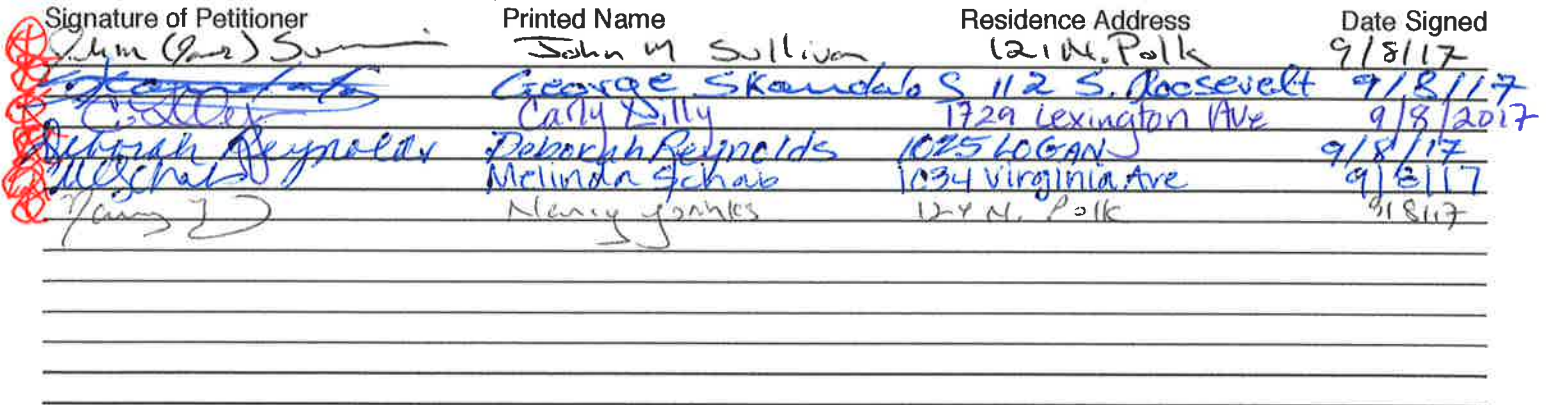 Signature of Petitioner Printed Name Residence Address Date Signed
John M Sullivan 121 N. Polk 9/8/17
George Skandalos 112 S. Roosevelt 9/8/17
Carly Lilly 1729 Lexington Ave 9/8/2017
Deborah Reynolds Deborah Reynolds 1025 LOGAN 9/8/17
Melinda Schab 1034 Virginia Ave 9/8/17
Nancy 124 N. Polk 9/8/17